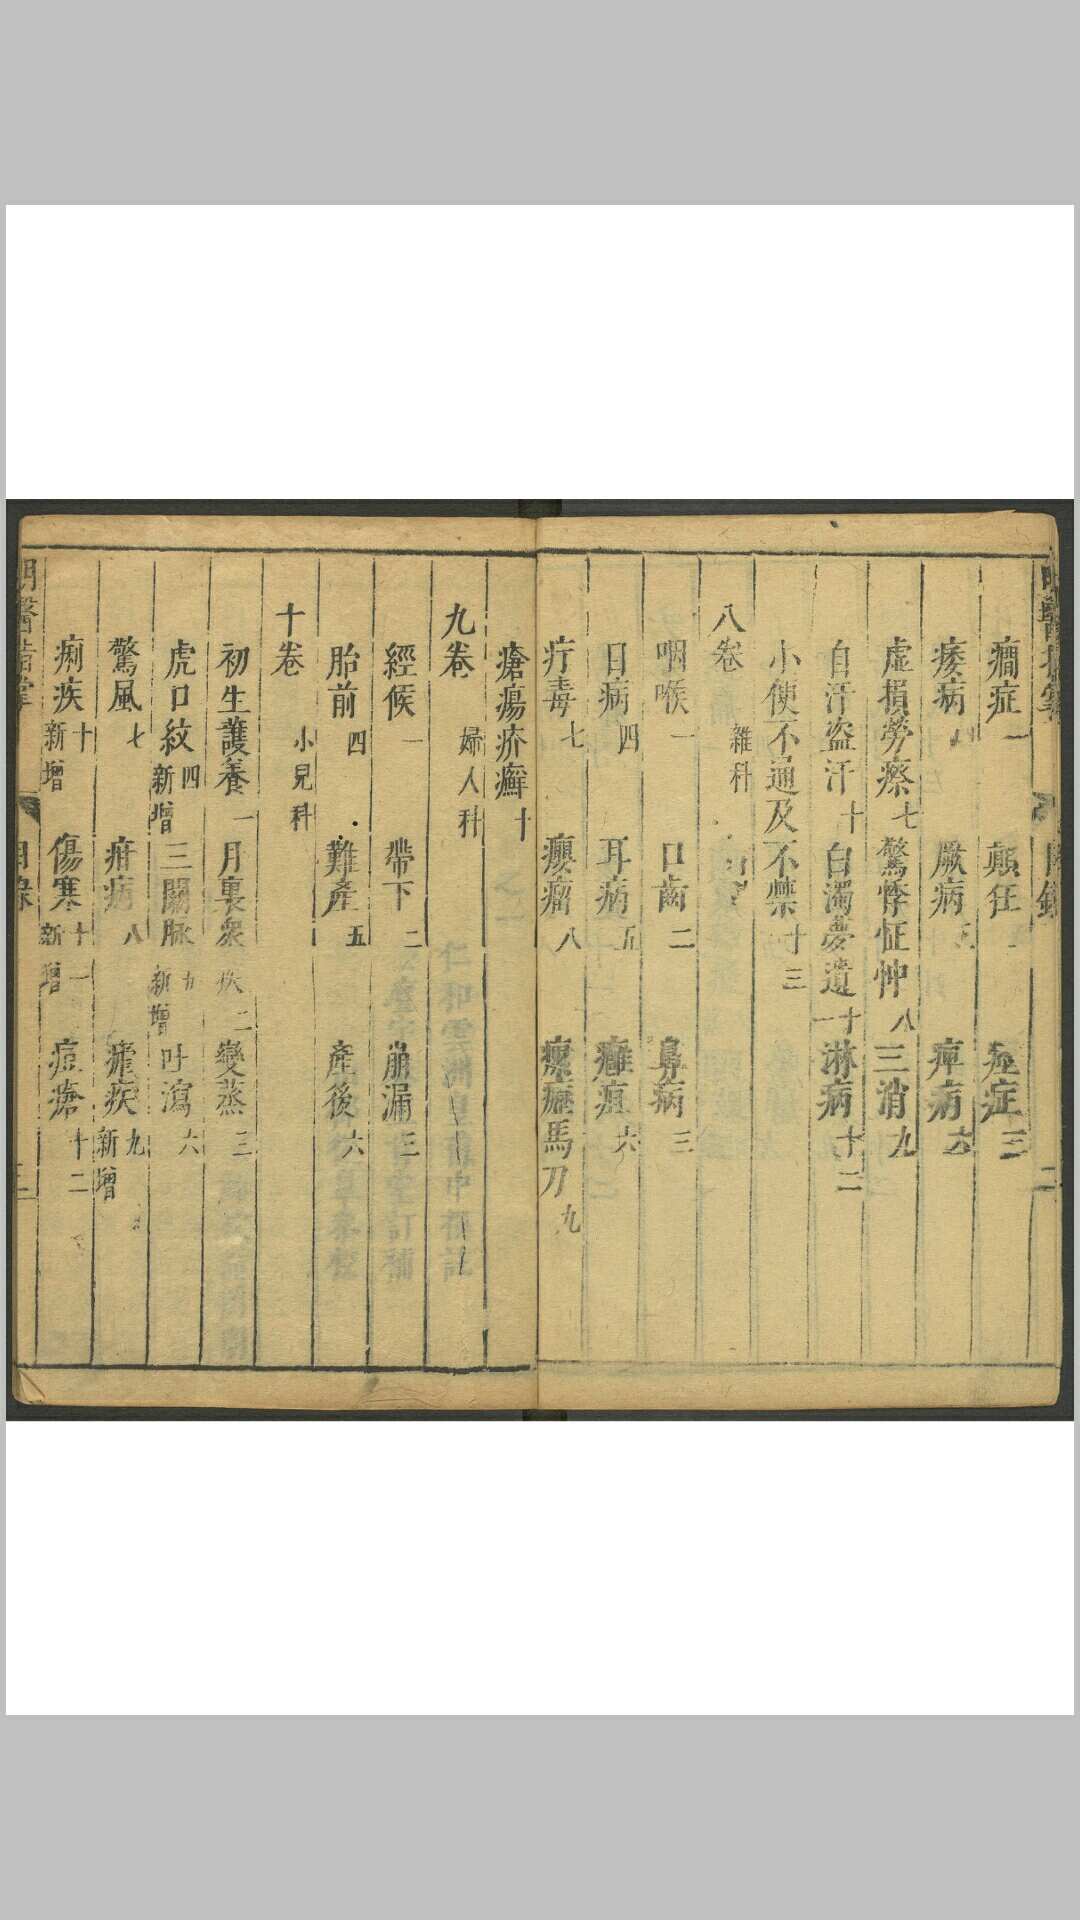 癇症一 顛狂二 痙症三
痿病四 厥病五 痺病六
虛損勞瘵七 驚悸怔忡八 三消九
自汗盜汗十 白濁夢遺十一 淋病十二
小便不通及不禁十三
八卷 雜科
咽喉一 口齒二 鼻病三
目病四 耳病五 癰疽六
疔毒七 癭瘤八 瘰癧馬刀九
瘡瘍疥癬十
九卷 婦人科
經候一 帶下二 崩漏三
胎前四 難產五 產後六
十卷 小兒科
初生護養一 月裏眾疾二 變蒸三
虎口紋四新增 三關脈五新增 吐瀉六
驚風七 疳病八 瘧疾九新增
痢疾十新增 傷寒十一新增 痘瘡十二
目錄